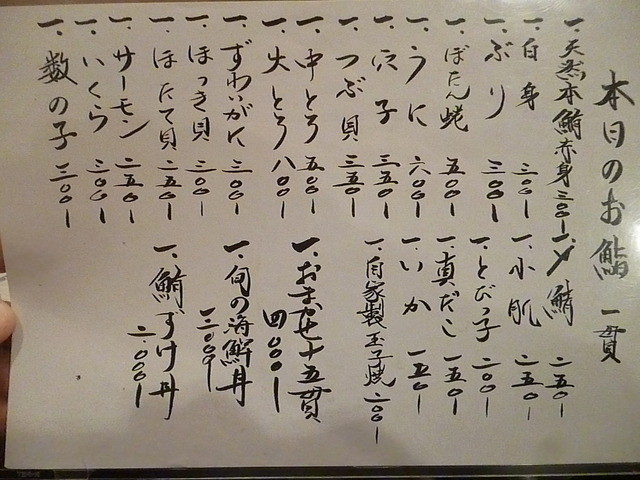 本日のお鮨 一貫
一、天然本鮪赤身 三〇〇ー
一、白身 三〇〇ー
一、ぶり 三〇〇ー
一、ぼたん蛯 五〇〇ー
一、うに 六〇〇ー
一、穴子 三五〇ー
一、つぶ貝 三五〇ー
一、中とろ 五〇〇ー
一、大とろ 八〇〇ー
一、ずわいがに 三〇〇ー
一、ほっき貝 三〇〇ー
一、ほたて貝 二五〇ー
一、サーモン 二五〇ー
一、いくら 三〇〇ー
一、数の子 三〇〇ー
一、〆鯖 二五〇ー
一、小肌 二五〇ー
一、とびっ子 二〇〇ー
一、真だこ 一五〇ー
一、いか 一五〇ー
一、自家製玉子焼 二〇〇ー
一、おまかせ十五貫 四〇〇〇ー
一、旬の海鮮丼
一、鮪づけ丼 二、〇〇〇ー